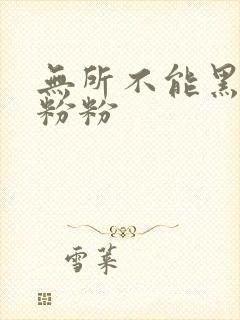 無所不能黑
粉粉
雪萊